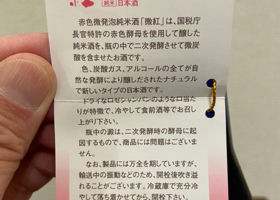 純米 日本酒
赤色微発泡純米酒「微紅」は、国税庁
長官特許の赤色酵母を使用して醸した
純米酒を、瓶の中で二次発酵させて微炭
酸を含ませたお酒です。
色、炭酸ガス、アルコールの全てが自
然な発酵により醸しだされたナチュラル
で新しいタイプの日本酒です。
ドライなロゼシャンパンのような口当た
りが特徴で、冷やして食前酒等でお召し
上がり下さい。
瓶中の澱は、二次発酵時の酵母に起
因するもので、商品には問題はございま
せん。
なお、製品には万全を期していますが、
輸送中の振動などのため、開栓後吹き溢
れることがございます。冷蔵庫で充分冷
やして落ち着かせてから、開栓下さい。